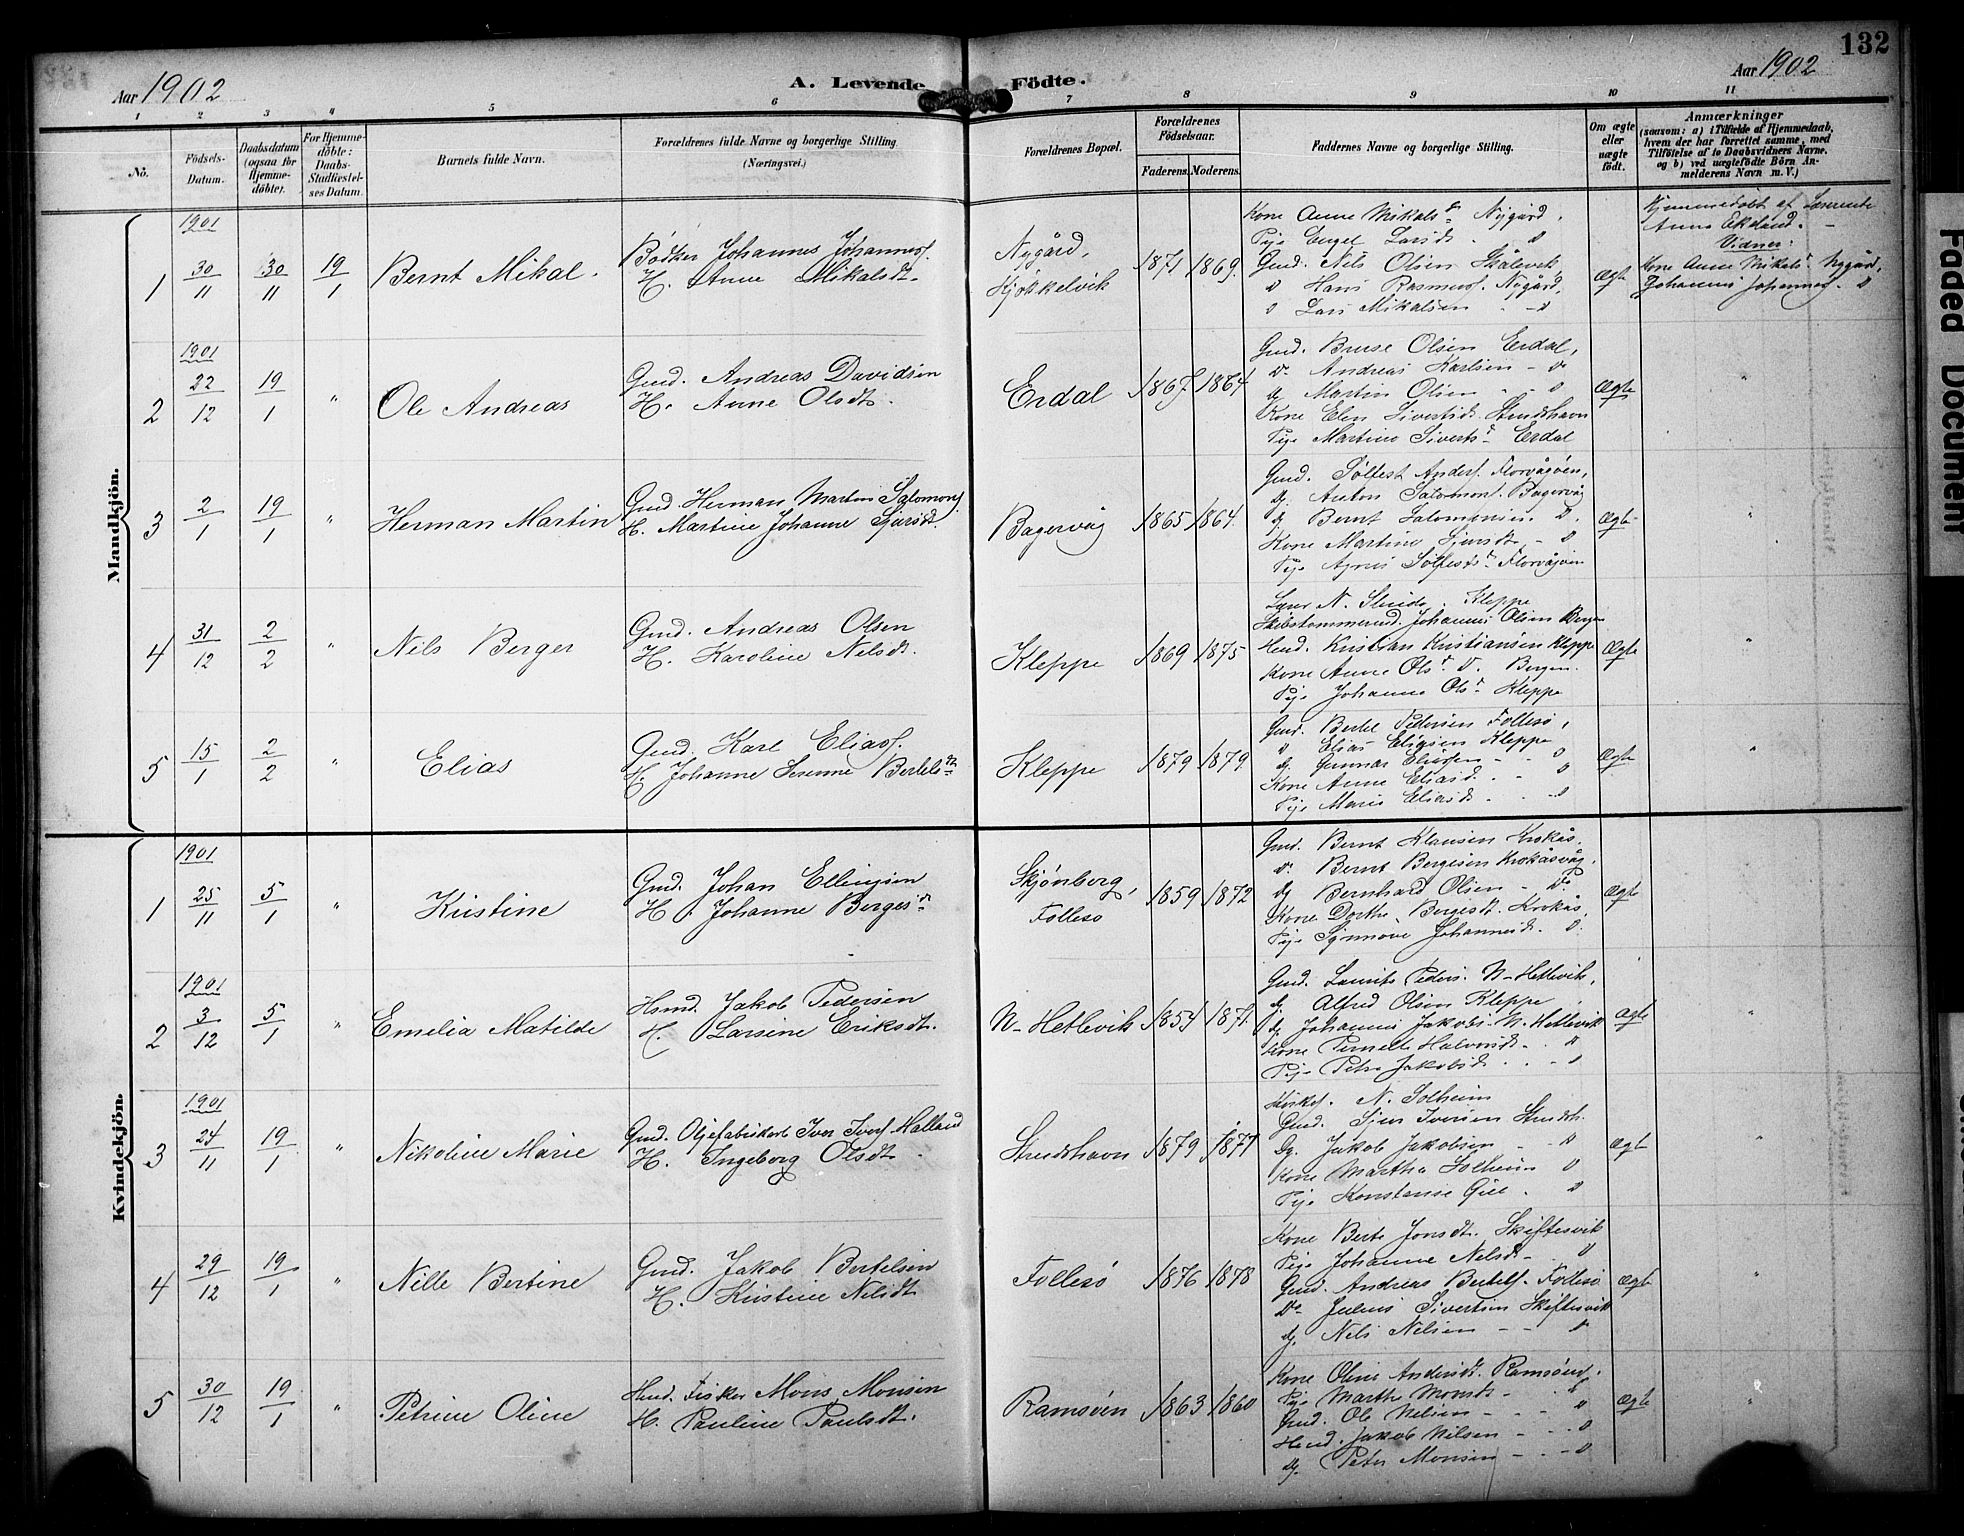 132
Aar 1902
A. Levende Födte.
Aar 1902
1 2 3 4 5 6 7 8 9 10 11
No.
Födsels-Datum.
Daabsdatum (ogsaa for Hjemme-döbte).
For Hjemme-döbte: Daabs-Stadfæstelses Datum.
Barnets fulde Navn.
Forældrenes fulde Navne og borgerlige Stilling (Næringsvei).
Forældrenes Bopæl.
Forældrenes Födselsaar.
Faderens. Moderens.
Faddernes Navne og borgerlige Stilling.
Om ægte eller uægte födt.
Anmærkninger
(saasom: a) i Tilfælde af Hjemmedaab, hvem der har forrettet samme, med Tilföielse af to Daabsvidners Navne, og b) ved uægtefödte Börn Anmelderens Navn m. V.)
Mandkjön.
1901
1 30/11 30/11 19/1 Bernt Mikal.
Bødker Johannes Johannes.
H. Anne Mikalsdt.
Nygård,
Kjøkkelvik
1871 1869.
Kone Anne Mikals Nygård.
Pige Engel Larsdt. "
Gmd. Nils Olsen Skålevik,
" Hans Rasmuss. Nygård,
" Lars Mikalsen - "
Ægte
Hjemmedøbt af
Anna Ekeland.
Vidner:
Kone Anne Mikals Nygård,
Johannes Johannes. "
1901
2 22/12 19/1 " Ole Andreas
Gmd. Andreas Davidsen
H. Anne Olsdt.
Erdal
1867. 1864
Gmd. Brune Olsen Erdal,
Do Andreas Karlsen - "
Dg. Martin Olsen - "
Kone Elen Sivertsdt. Strudshavn
Pige Martine Siverts Erdal
Ægte "
3 2/1 19/1 " Herman Martin
Gmd Herman Martin Salomons.
H. Martine Johanne Sjursdt.
Bagervåg
1865 1864.
Gmd. Sølfest Anders. Florvågøen,
Dg. Anton Salomons. Bagervåg
Dg. Bernt Salomonsen. D.
Kone Martine Sjursdt. - D
Pige Agnes Sølfestsdt. Florvågøen
Ægte "
4 31/12 2/2 " Nils Berger
Gmd. Andreas Olsen
H. Karoline Nelsdt.
Kleppe
1869 1875
Lærer N. Kleppe
Skibstømmermd. Johannes Olsen Bergen
Hmd. Kristian Kristiansen Kleppe
Kone Anne Ols D. Bergen.
Pige Johanne Ols Kleppe
Ægte "
5 15/1 2/2 " Elias
Gmd. Karl Elias.
H. Johanne Serenne Bertelsdt
Kleppe
1879 1879.
Gmd. Bertel Pedersen Follesø,
" Elias Eliasen Kleppe
Dg. Gunnar Eliasen - "
Kone Anne Eliasd. - "
Pige Marie Eliasdt. - "
Ægte "
Kvindekjön.
1901
1 25/11 5/1 " Kristine
Gmd. Johan Ellingsen
H. Johanne Berges
Skjønberg,
Follesø
1859 1872
Gmd. Bernt Klausen Krokås.
Do. Bernt Bergesen Krokåsvåg.
Dg Bernhard Olsen - Do
Kone Dorthe Bergesdt. Krokås,
Pige Synnove Johannesdt. D.
Ægte "
1901
2 3/12 5/1 " Emelia Matilde
Hsmd. Jakob Pedersen
H. Larsine Eriksdt.
N-Hetlevik
1854 1871.
Gmd. Laurits Peders. N-Hetlevik,
Dg. Alfred Olsen Kleppe
Dg. Johannes Jakobs. N-Hetlevik
Kone Pernelle Halvorsdt - "
Pige Petra Jakobsdt. - "
Ægte "
1901
3 24/11 19/1 " Nikoline Marie
Gmd. Oljefabrikarb Iver Ivers. Halland
H. Ingeborg Olsdt.
Strudshavn
1879 1871
Kirkes. N. Solheim
Gmd. Sjur Iversen Strudsh.
Dg. Jakob Jakobsen - "
Kone Martha Solheim "
Pige Konstanse Gill. "
Ægte "
4 29/12 19/1 " Nille Bertine
Gmd. Jakob Bertelsen
H. Kristine Nilsdt
Follesø
1876 1878
Kone Berte Jonsdt. Skiftesvik
Pige Johanne Nelsdt - "
Gmd. Andreas Bertels. Follesø
Do Julius Sivertsen Skiftesvik
Dg. Nels Nilsen - - "
Ægte "
5 30/12 19/1 " Petrine Oline
Hmd. Fisker Mons Monsen
H. Pauline Paulsdt.
Ramsøen
1863 1860
Kone Oline Andersdt. Ramsøen.
Pige Marthe Monsdt - "
Gmd. Ole Nilsen - - "
Hmd. Jakob Nilsen - - "
Dg. Peter Monsen - - "
Ægte "
Faded Document